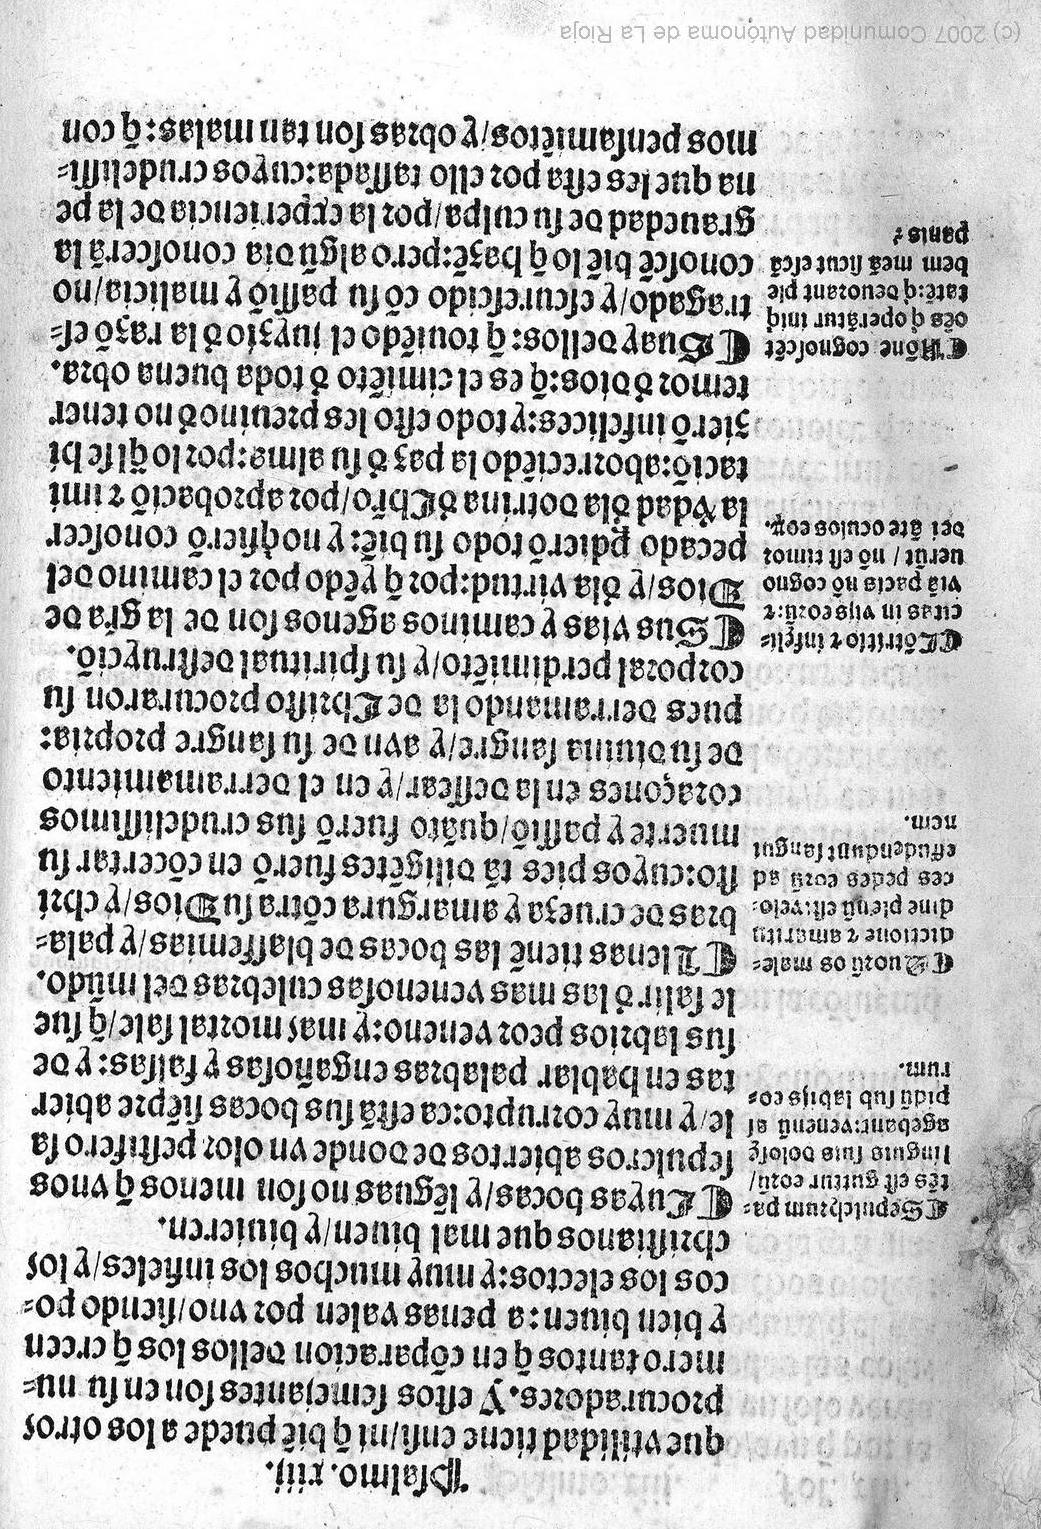 Psalmo. xiij.
que vtilidad tiene ensi/ni q̃ biẽ puede a los otros
procuradores. Y estos semejantes son en su nu=
mero tantos q̃ en cõparacion dellos los q̃ creen
y bien biuen: a penas valen por vno/siendo po=
cos los electos: y muy muchos los infieles/y los
christianos que mal biuen/y biuieren.
¶ Cuyas bocas/y lẽguas no son menos q̃ vnos
sepulcros abiertos de donde vn olor pestifero sa
le/y muy corrupto: ca estã sus bocas siẽpre abier
tas en hablar palabras engañosas y falsas: y de
sus labrios peor veneno: y mas mortal sale/q̃ sue
le salir d̃ las mas venenosas culebras del mũdo.
¶ Llenas tienẽ las bocas de blasfemias/y pala=
bras de crueza y amargura cõtra su Dios/y chri
sto: cuyos pies tã diligẽtes fuerõ en cõcertar su
muerte y passiõ/quãto fuerõ sus crudelissimos
coraçones en la dessear/y en el derramamiento
de su diuina sangre/y avn de su sangre propria:
pues derramando la de Christo procuraron su
corporal perdimiẽto/y su spiritual destruyciõ.
¶ Sus vias y caminos agenos son de la grã de
Dios/y d̃la virtud: por q̃ yẽdo por el camino del
pecado p̃dierõ todo su biẽ: y no q̃sierõ conoscer
la v̓dad d̃la dotrina d̃ Chr̃o/por aprobaciõ ⁊ imi
taciõ: aborreciẽdo la paz d̃ su alma: por lo q̃l se hi
zierõ infelices: y todo esto les preuino d̃ no tener
temor d̃ dios: q̃ es el cimiẽto d̃ toda buena obra.
¶ Guay dellos: q̃ touiẽdo el juyzio d̃ la razõ es=
tragado/y escurescido cõ su passiõ y malicia/no
conoscẽ biẽ lo q̃ hazẽ: pero algũ dia conoscerã la
grauedad de su culpa/por la experiencia de la pe
na que les esta por ello tassada: cuyos crudelissi=
mos pensamiẽtos/y obras son tan malas: q̃ con
¶ Sepulchrum pa=
tẽs est guttur eorũ/
linguis suis dolose
agebant: venenũ as
pidũ sub labijs eo=
rum.
¶ Quorũ os male=
dictione ⁊ amaritu
dine plenũ est: velo=
ces pedes eorũ ad
effundendum sangui
nem.
¶ Cõtritio ⁊ infeli=
citas in vijs eorũ: ⁊
viã pacis nõ cogno
uerũt / nõ est timor
dei ãte oculos eoꝝ.
¶ Nõne cognoscẽt
oẽs q̃ operãtur iniq̃
tatẽ: q̃ deuorant ple
bem meã sicut escã
panis?
(c) 2007 Comunidad Autónoma de La Rioja